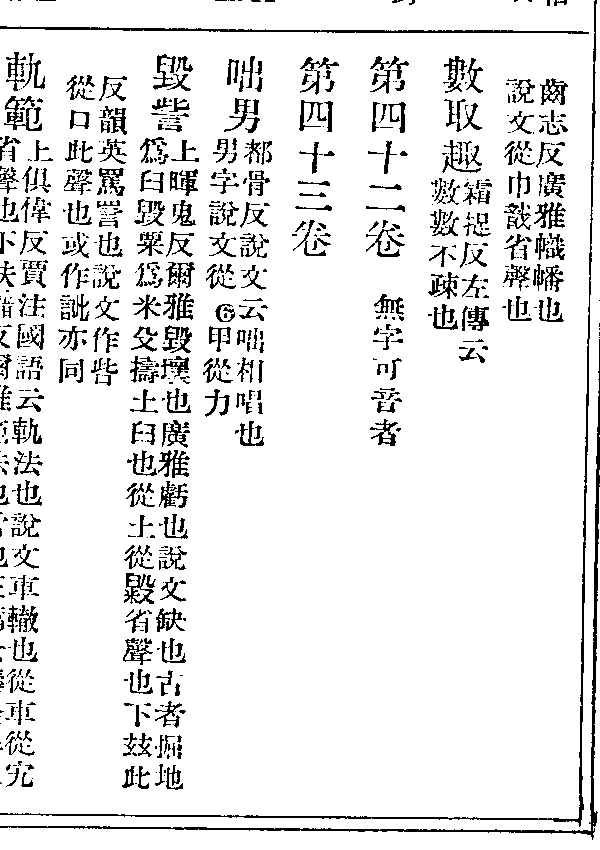 齒志反廣雅幟幡也
說文從巾戠省聲也
數取趣 霜捉反左傳云
數數不疎也
第四十二卷 無字可音者
第四十三卷
咄男 都骨反說文云咄相唱也
男字說文從6甲從力
毀訾 上暉鬼反爾雅毀壞也廣雅虧也說文缺也古者掘地
爲臼毀粟爲米殳擣土臼也從土從毇省聲也下玆此
反韻英罵詈也說文作呰
從口此聲也或作訿亦同
軌範 上俱偉反賈注國語云軌法也說文車轍也從車從宄
省聲也下